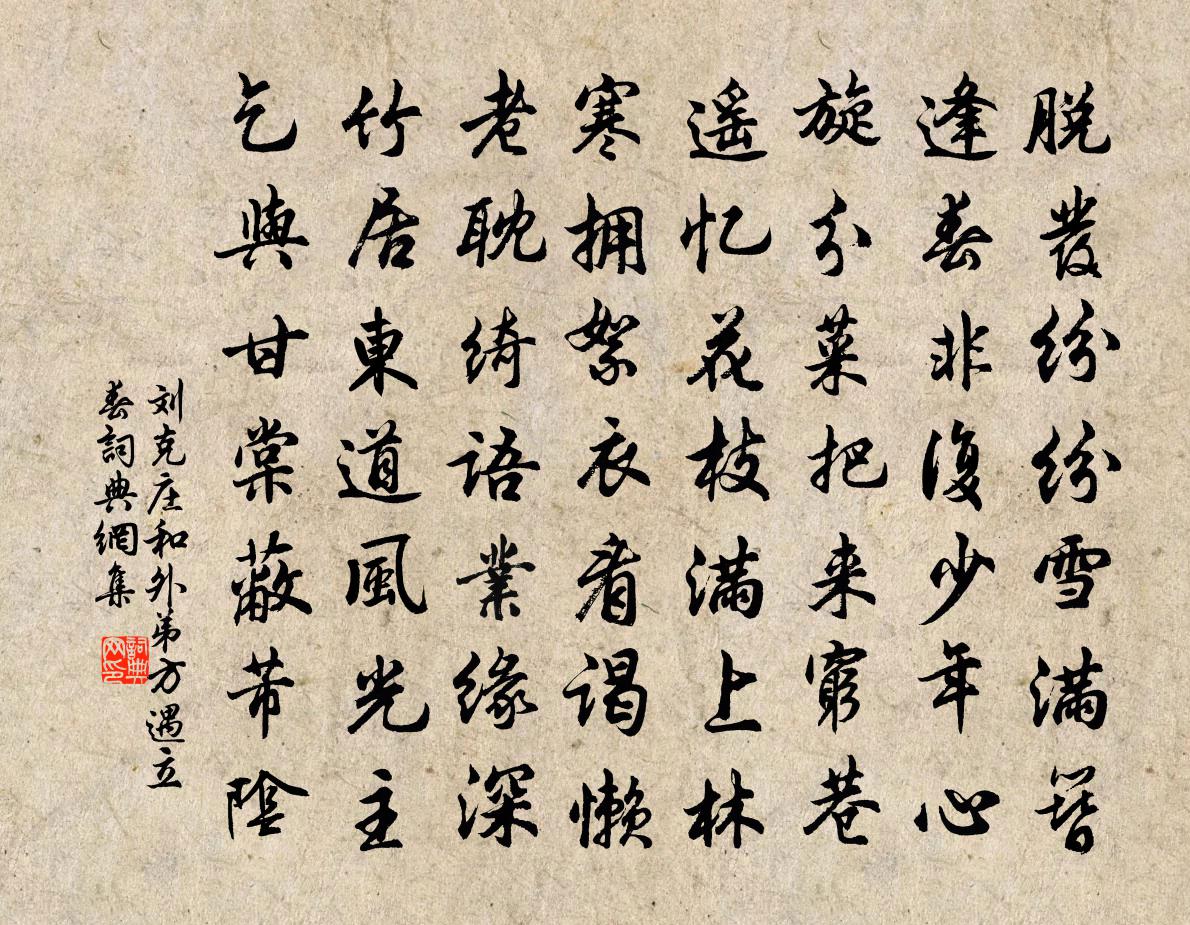 脱發纷纷雪满簪
逢春非復少年心
旋分菜把来窮巷
遥忆花枝满上林
寒拥絮衣看谒懒
老耽绮语業缘深
竹居東道風光主
乞與甘棠蔽芾陰
刘克庄和外弟方遇立
春詞典網集
詞典
网印